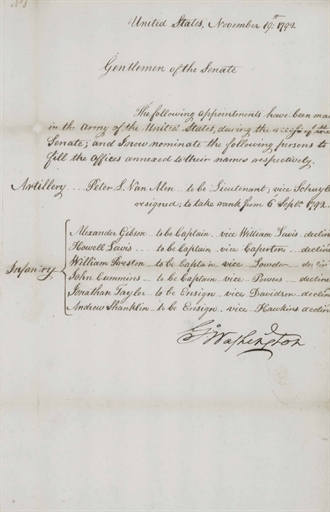 No. 1
United States, November 19th 1792.
Gentlemen of the Senate
The following appointments have been ma
in the Army of the United States, during the recess of the
Senate; and I now nominate the following persons to
fill the Offices annexed to their names respectively.
Artillery... Peter L. Van Alen.. to be Lieutenant, vice Schuyle
resigned; to take rank from 6 Septr. 1792.
Alexander Gibson.. to be Captain, vice William Lewis declin
Howell Lewis... to be Captain, vice Caperton.. declin
Infantry William Preston.. to be Captain vice Lowder.. declin
John Cummins.. to be Captain vice Powers declin
Jonathan Taylor.. to be Ensign, vice Davidson declin
Andrew Shanklin.. to be Ensign, vice Hawkins declin
Go. Washington